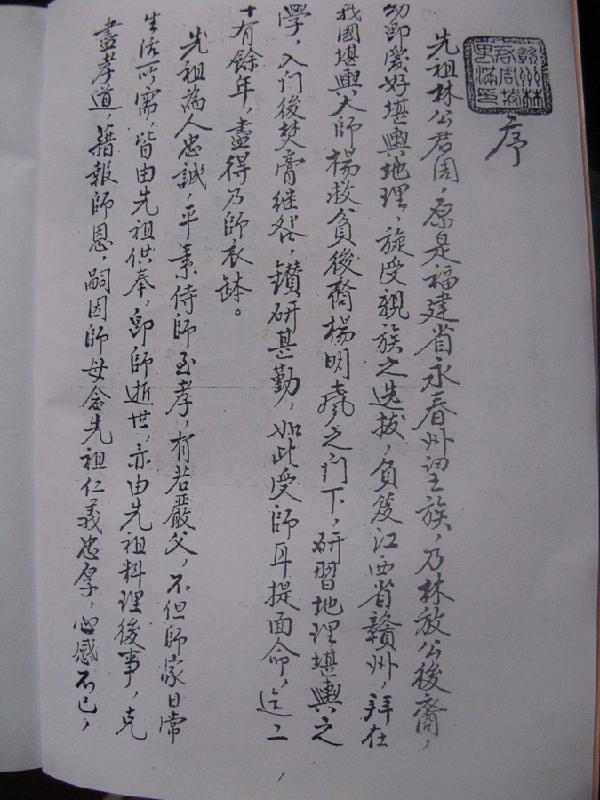 序
先祖林公君周，原是福建省永春州望族，乃林放公後裔，
幼即愛好堪輿地理，旋受親族之选拔，負笈江西省贛州，拜在
我國堪輿大師楊救貧後裔楊明堯之門下，研習地理堪輿之
學，入门後焚膏继晷，鑽研甚勤，如此受師耳提面命，迄二
十有餘年，盡得乃師衣缽。
先祖為人忠誠，平素侍師至孝，有若嚴父，不但師家日常
生活所需，皆由先祖供奉，即師逝世，亦由先祖料理後事，克
盡孝道，藉報師恩，嗣因師母念先祖仁義忠厚，心感不已，